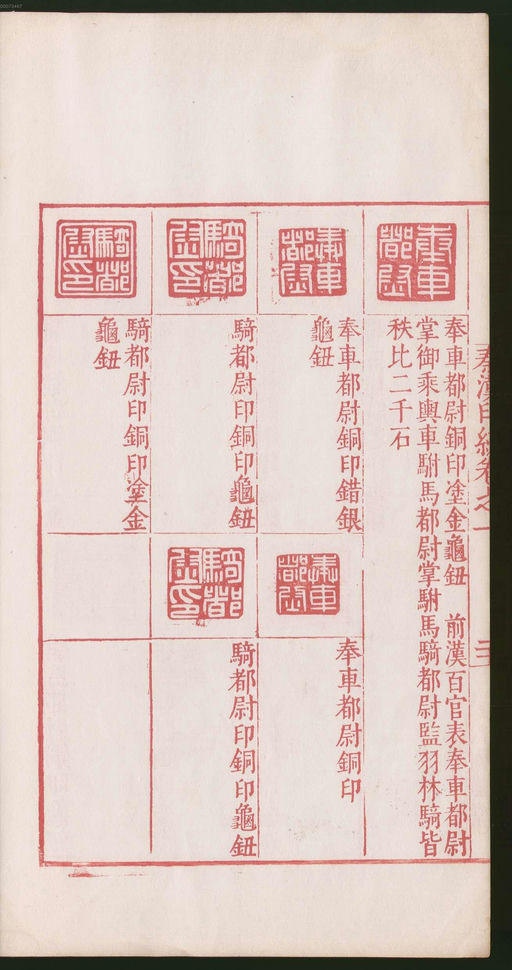 奉車都尉
奉車都尉銅印塗金龜鈕　前漢百官表奉車都尉
掌御乘輿車駙馬都尉掌駙馬騎都尉監羽林騎皆
秩比二千石
奉車都尉
奉車都尉銅印錯銀
龜鈕
奉車都尉
奉車都尉銅印
騎都尉印
騎都尉印銅印龜鈕
騎都尉印
騎都尉印銅印龜鈕
騎都尉印
騎都尉印銅印塗金
龜鈕